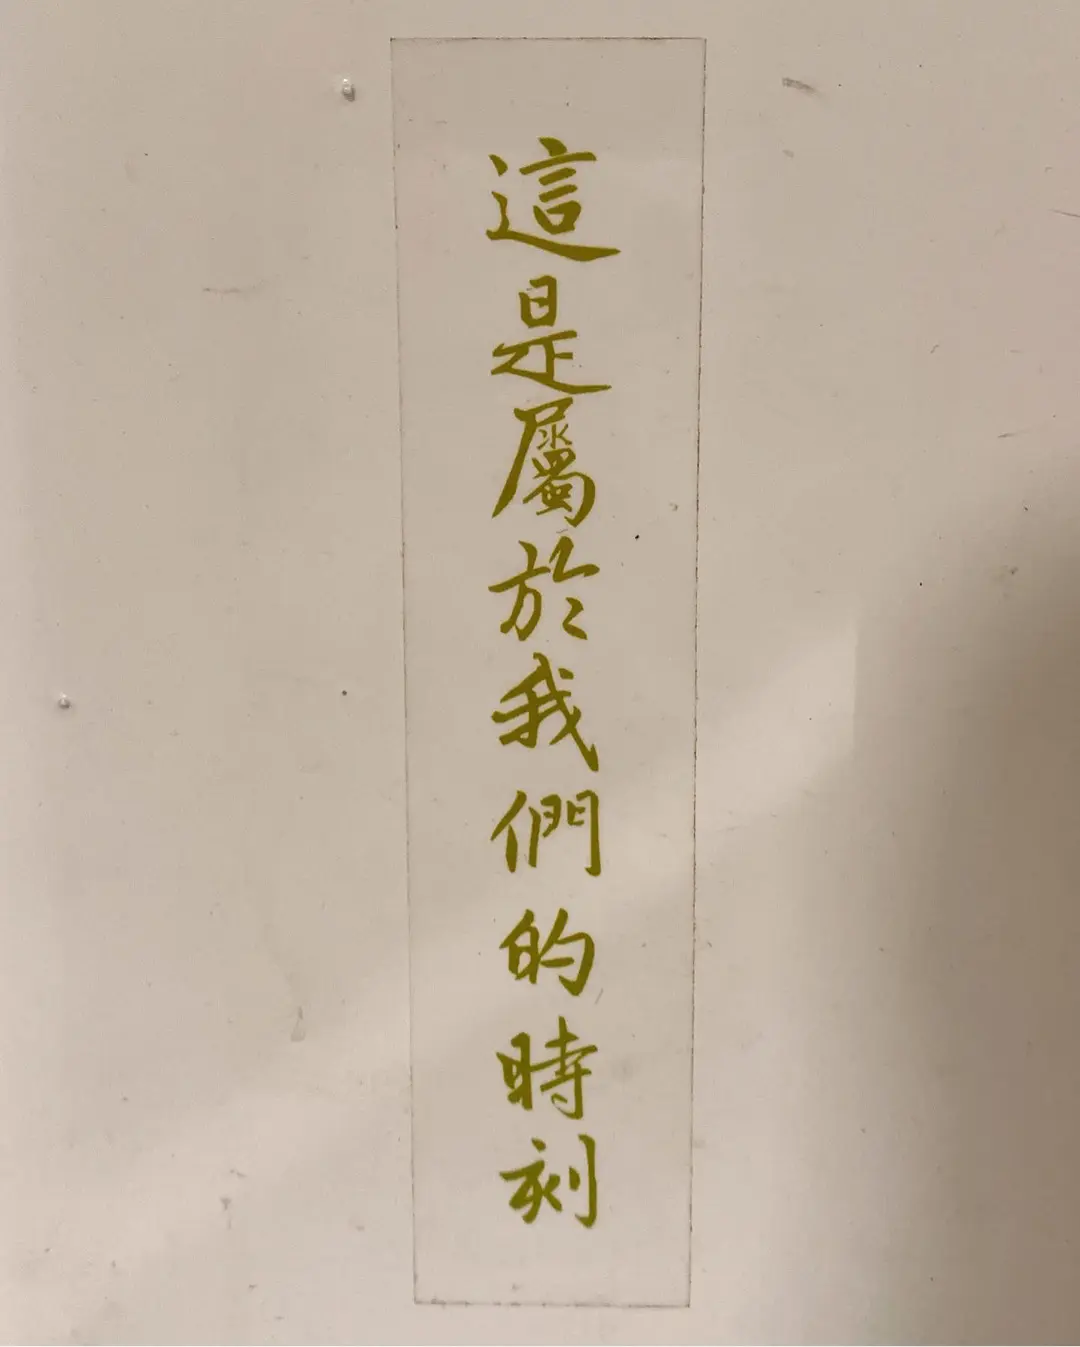 這是屬於我們的時刻